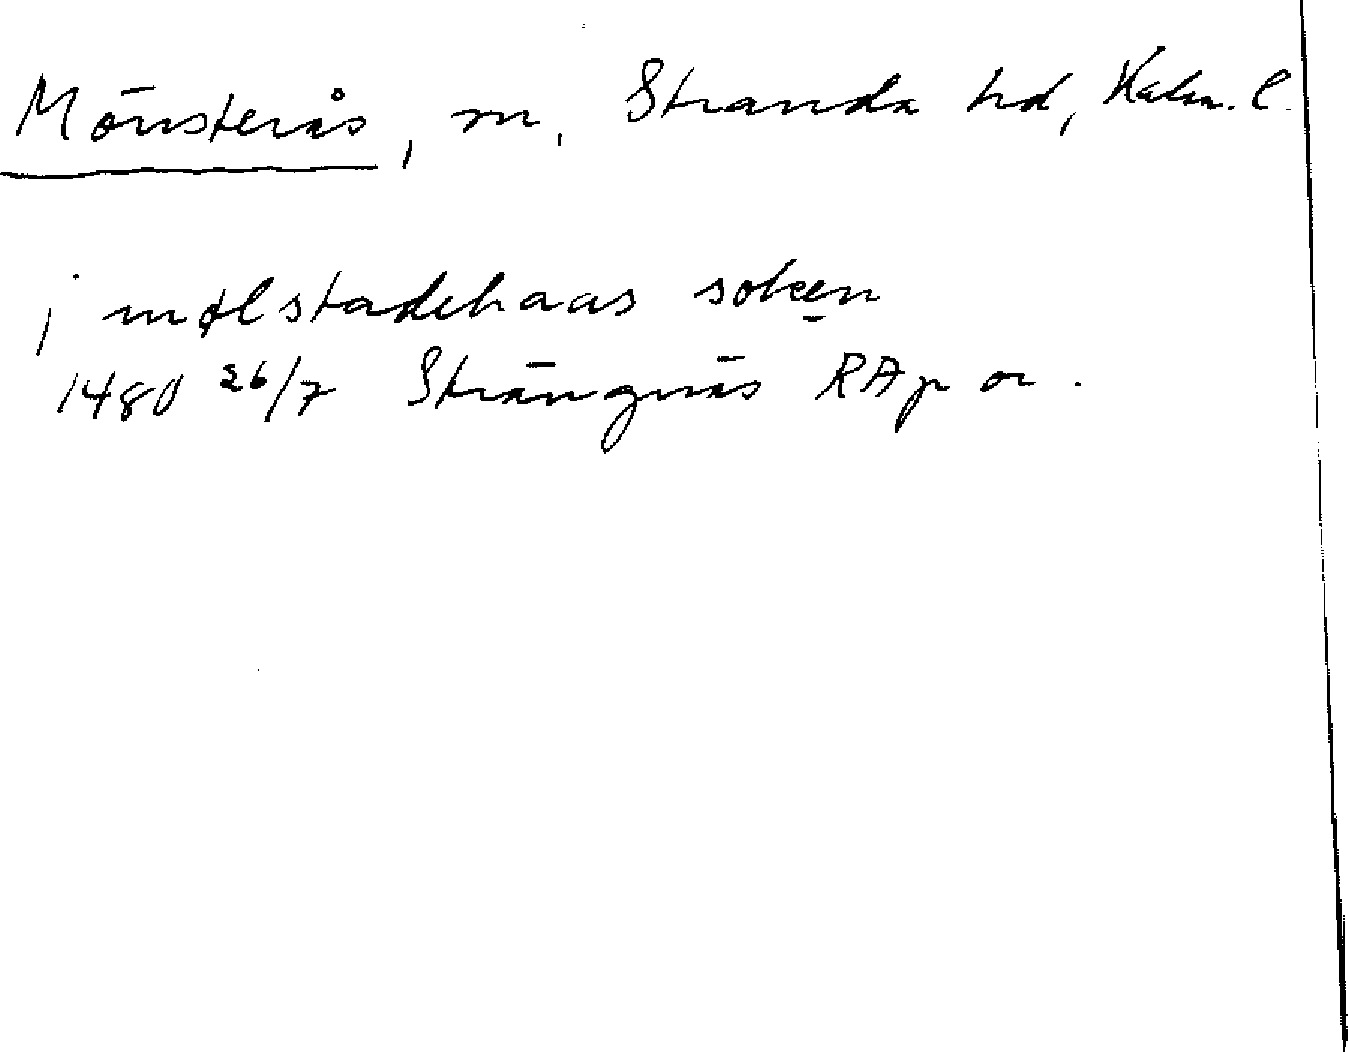 Mönsterås, sn, Stranda hd, Kalm. l.
j mølstadehaas soken
1480 26/7 Strängnäs RAp or.